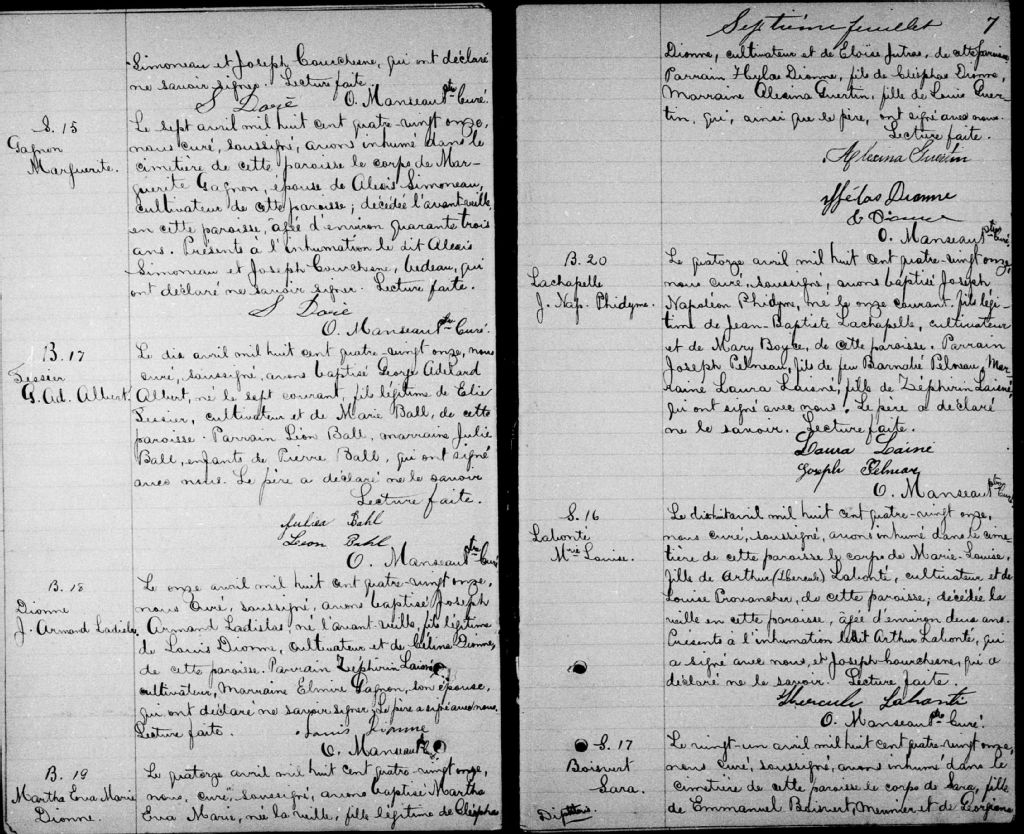 Simoneau et Joseph Courchesne, qui ont déclaré
ne savoir signer. Lecture faite.
S Doré
O. Manseau Ptre Curé.
S. 15
Gagnon
Marguerite.
Le sept avril mil huit cent quatre-vingt onze,
nous curé, soussigné, avons inhumé dans le
cimetière de cette paroisse le corps de Mar-
guerite Gagnon, épouse de Alexis Simoneau,
cultivateur de cette paroisse; décédée l'avant veille,
en cette paroisse, âgée d'environ quarante trois
ans. Présents à l'inhumation le dit Alexis
Simoneau et Joseph Courchesne, bedeau, qui
ont déclaré ne savoir signer. Lecture faite.
S Doré
O. Manseau Ptre Curé.
B. 17
Tessier
G. Ad. Albert.
Le dix avril mil huit cent quatre-vingt onze, nous
curé, soussigné, avons baptisé George Adélard
Albert, né le sept courant, fils légitime de Elie
Tessier, cultivateur et de Marie Ball, de cette
paroisse. Parrain Léon Ball, marraine Julie
Ball, enfants de Pierre Ball, qui ont signé
avec nous. Le père a déclaré ne le savoir
Lecture faite.
Julia Bahl
Leon Bahl
O. Manseau Ptre Curé
B. 18
Dionne
J. Armand Ladislas
Le onze avril mil huit cent quatre-vingt onze,
nous Curé, soussigné, avons baptisé Joseph
Armand Ladislas, né l'avant-veille, fils légitime
de Louis Dionne, cultivateur et de Célina Dionne,
de cette paroisse. Parrain Zéphirin Lainé
cultivateur, Marraine Elmire Gagnon, son épouse,
qui ont déclaré ne savoir signer. Le père a signé avec nous.
Lecture faite. Louis Dionne
O. Manseau Ptre
B. 19
Martha Eva Marie
Dionne.
Le quatorze avril mil huit cent quatre-vingt onze,
nous, curé, soussigné, avons baptisé Martha
Eva Marie, née la veille, fille légitime de Cléophas
Septième feuillet 7
Dionne, cultivateur et de Eloïse Jutras, de cette paroisse
Parrain Hylas Dionne, fils de Cléophas Dionne,
Marraine Alexina Guertin, fille de Louis Guer-
tin, qui, ainsi que le père, ont signé avec nous.
Lecture faite.
Guertin
Dionne
C Dionne
O. Manseau Ptre Curé.
B. 20
Lachapelle
J. Nap. Phidyme.
Le quatorze avril mil huit cent quatre-vingt onze,
nous curé, soussigné, avons baptisé Joseph
Napoléon Phidyme, né le onze courant, fils légi-
time de Jean-Baptiste Lachapelle, cultivateur
et de Mary Boyce, de cette paroisse. Parrain
Joseph Pelneau, fils de feu Barnabé Pelneau, Mar-
raine Laura Laisné, fille de Zéphirin Laisné,
qui ont signé avec nous. Le père a déclaré
ne le savoir. Lecture faite.
Laura Lainé
Joseph
O. Manseau Ptre Curé
S. 16
Labonté
Mrie Louise.
Le dixhuit avril mil huit cent quatre-vingt onze,
nous curé, soussigné, avons inhumé dans le cime-
tière de cette paroisse le corps de Marie-Louise,
fille de Arthur (Hercule) Labonté, cultivateur et de
Louise Provancher, de cette paroisse; décédée la
veille en cette paroisse, âgée d'environ deux ans.
Présents à l'inhumation ledit Arthur Labonté, qui
a signé avec nous, et Joseph Courchesne, qui a
déclaré ne le savoir. Lecture faite.
Hercule Labonté
O. Manseau Ptre Curé.
S. 17
Boisvert
Sara.
Le vingt-un avril mil huit cent quatre-vingt onze,
nous curé, soussigné, avons inhumé dans le
cimetière de cette paroisse le corps de Sara, fille
de Emmanuel Boisvert, Meunier et de Georgiana